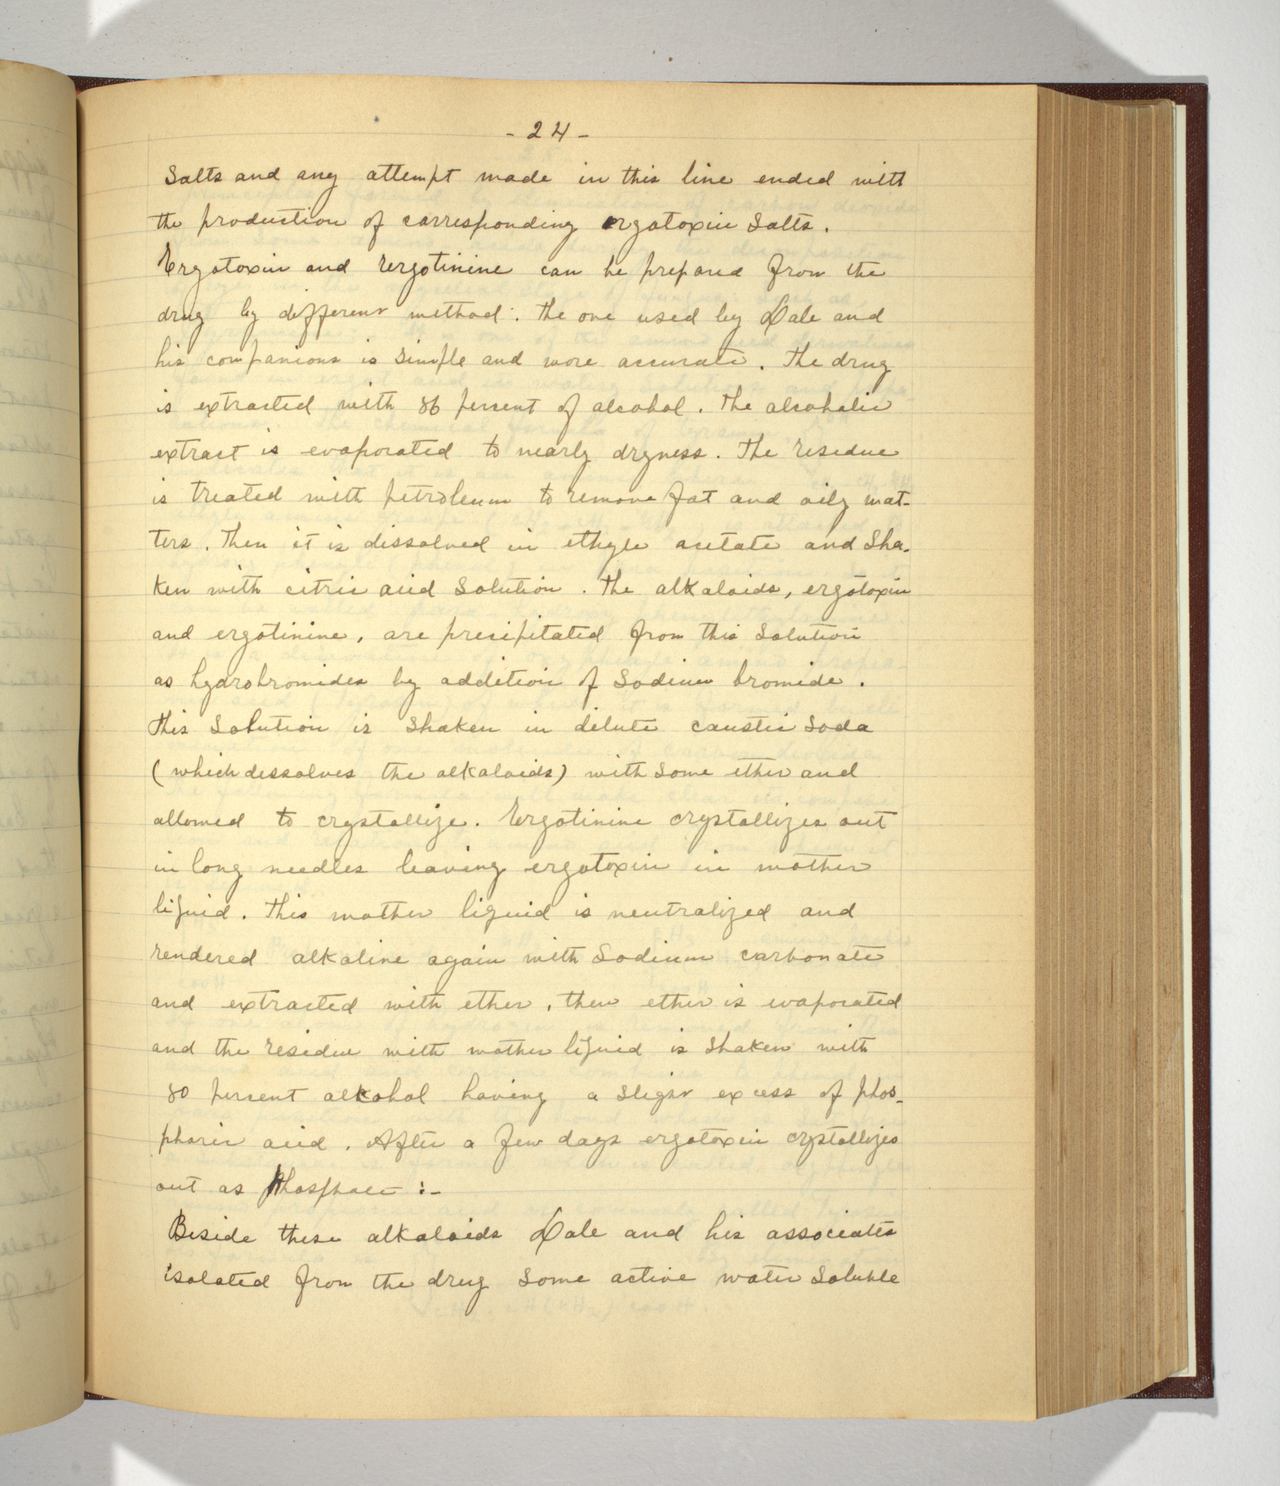 - 24 -
Salts and any attempt made in this line ended with
the production of corresponding ergotoxin Salts.
Ergotoxin and Ergotinine can be prepared from the
drug by different method. The one used by Dale and
his companions is simple and more accurate. The drug
is extracted with 86 percent of alcohol. The alcoholic
extract is evaporated to nearly dryness. The residue
is treated with petroleum to remove fat and oily mat-
ters. Then it is dissolved in ethyle acetate and Sha-
ken with citric acid Solution. The alkaloids, ergotoxin
and ergotinine, are precipitated from this Solution
as hydrobromides by addition of Sodium bromide.
This Solution is Shaken in dilute caustic Soda
(which dissolves the alkaloids) with some ether and
allowed to crystallize. Ergotinine crystallizes out
in long needles leaving ergotoxin in mother
liquid. This mother liquid is neutralized and
rendered alkaline again with Sodium carbonate
and extracted with ether, then ether is evaporated
and the residue with mother liquid is Shaken with
80 percent alcohol having a sligh excess of phos-
phoric acid. After a few days ergotoxin crystallizes
out as Phosphate :-
Beside these alkaloids Dale and his associates
isolated from the drug some active water Soluble